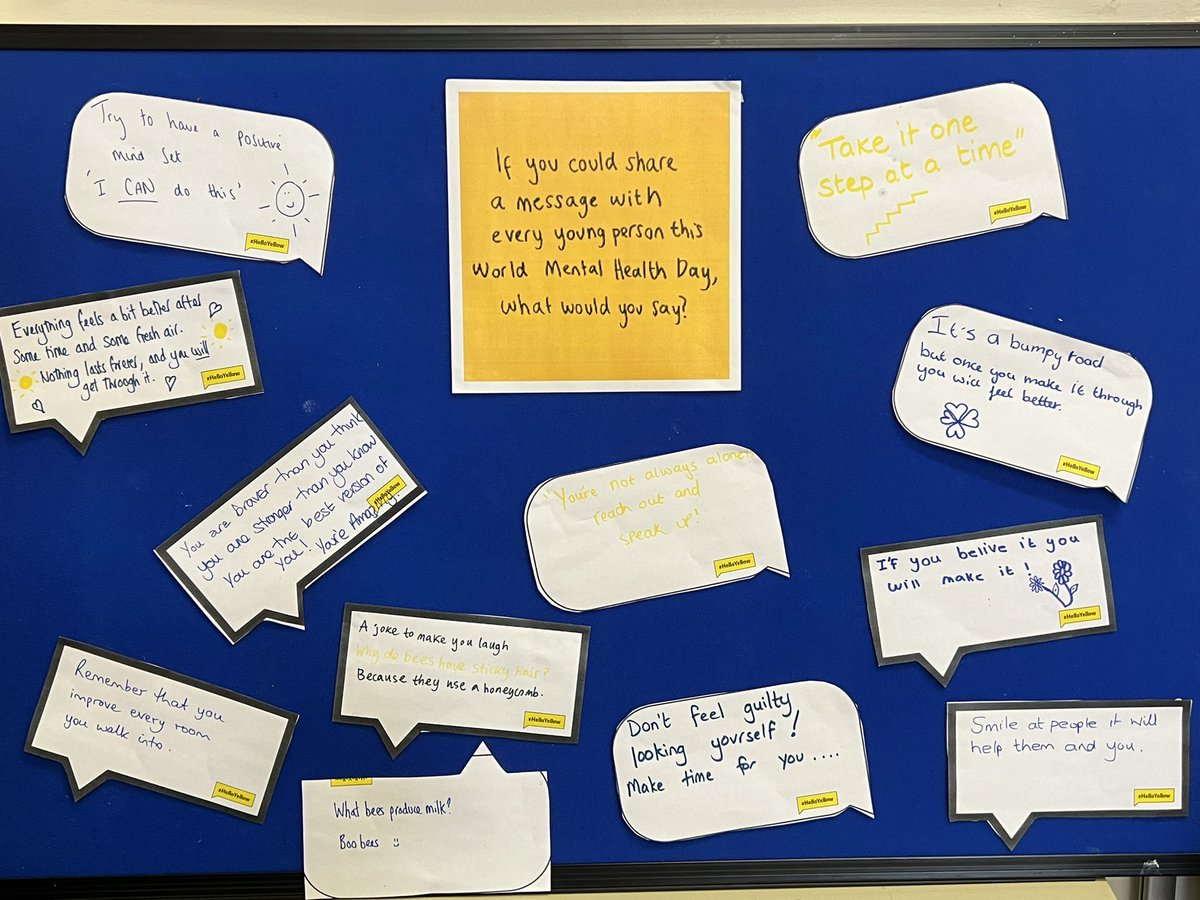 If you could share
a message with
every young person this
World Mental Health Day,
what would you say?
Try to have a positive
mind set
'I CAN do this'
#HelloYellow
"Take it one
step at a time"
#HelloYellow
Everything feels a bit better after
some time and some fresh air.
Nothing lasts forever, and you will
get through it.
#HelloYellow
It's a bumpy road
but once you make it through
you will feel better.
#HelloYellow
You are braver than you think
you are stronger than you know
You are the best version of
you! You're Amazing.
#HelloYellow
"You're not always alone!!
reach out and
speak up!
#HelloYellow
If you belive it you
will make it!
#HelloYellow
A joke to make you laugh
Why do bees have sticky hair?
Because they use a honeycomb.
#HelloYellow
Remember that you
improve every room
you walk into.
#HelloYellow
Don't feel guilty
looking yourself!
Make time for you....
#HelloYellow
Smile at people it will
help them and you.
#HelloYellow
What bees produce milk?
Boobees